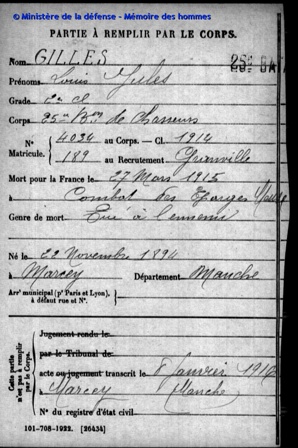 © Ministère de la défense - Mémoire des hommes
PARTIE À REMPLIR PAR LE CORPS.
Nom GILLES
Prénoms Louis Jules
Grade 2e cl
Corps 25me Bon de Chasseurs
N° Matricule. { 4034 au Corps. — Cl. 1914
189 au Recrutement Granville
Mort pour la France le 27 Mars 1915
à Combat des Eparges Meuse
Genre de mort Tué à l'ennemi
Né le 22 Novembre 1894
à Marcey Département Manche
Arr¹ municipal (p¹ Paris et Lyon), à défaut rue et N°. {
Cette partie n'est pas à remplir par le Corps.
Jugement rendu le
par le Tribunal de
acte ou jugement transcrit le 8 Janvier
à Marcey Manche
N° du registre d'état civil
101-708-1922. [26434]